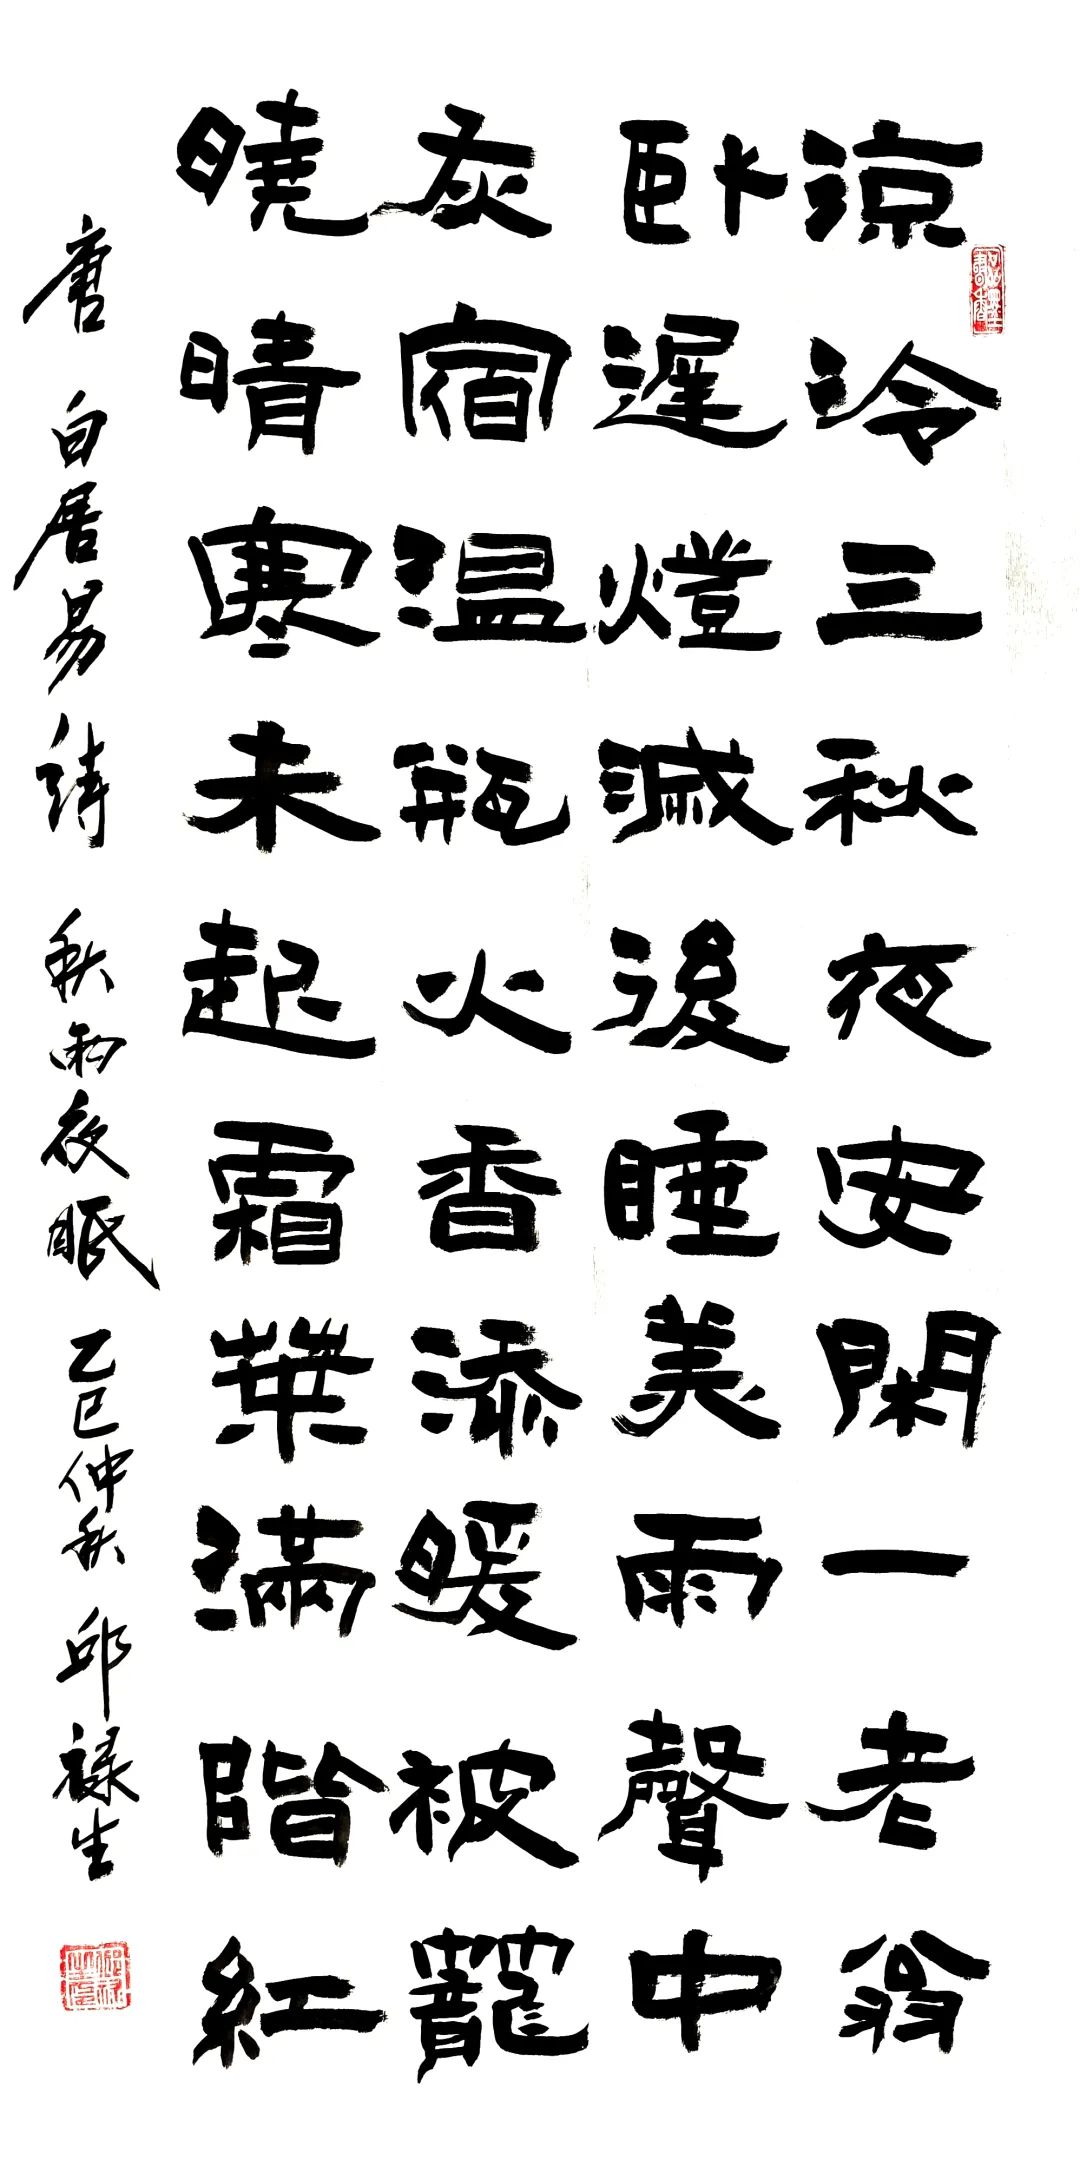 涼冷三秋夜安閑一老翁
卧遲燈滅後睡美雨聲中
灰宿温瓶火香添暖被籠
曉晴寒未起霜葉滿階紅
唐 白居易詩 秋雨夜眠 乙巳仲秋 邱禄生